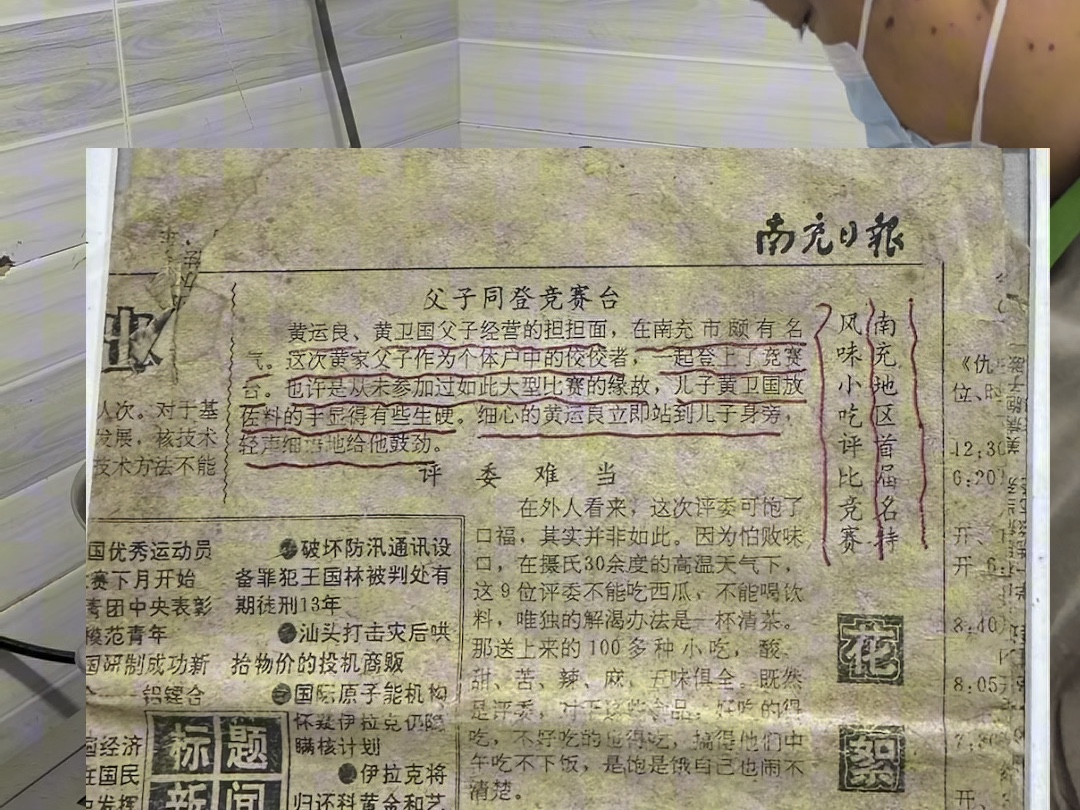 南充日报
父子同登竞赛台
黄运良、黄卫国父子经营的担担面，在南充市颇有名
气。这次黄家父子作为个体户中的佼佼者，一起登上了竞赛
台。也许是从未参加过如此大型比赛的缘故，儿子黄卫国放
佐料的手显得有些生硬。细心的黄运良立即站到儿子身旁，
轻声细语地给他鼓劲。
评委难当
在外人看来，这次评委可饱了
口福，其实并非如此。因为怕败味
口，在摄氏30余度的高温天气下，
这9位评委不能吃西瓜，不能喝饮
料，唯独的解渴办法是一杯清茶。
那送上来的100多种小吃，酸、
甜、苦、辣、麻，五味俱全。既然
是评委，对于这些食品，好吃的得
吃，不好吃的也得吃，搞得他们中
午吃不下饭，是饱是饿自己也闹不
清楚。
南充地区首届名特
风味小吃评比竞赛
花
絮
人次。对于基
发展，核技术
技术方法不能
国优秀运动员
赛下月开始
青团中央表彰
模范青年
国研制成功新
铝锂合
经济
在国民
发挥
●破坏防汛通讯设
备罪犯王国林被判处有
期徒刑13年
●汕头打击灾后哄
抬物价的投机商贩
●国际原子能机构
怀疑伊拉克仍隐
瞒核计划
●伊拉克将
归还科黄金和艺
标题
新闻
《仇
位、时
12:30
6:20
开
开
8:40
8:05
开